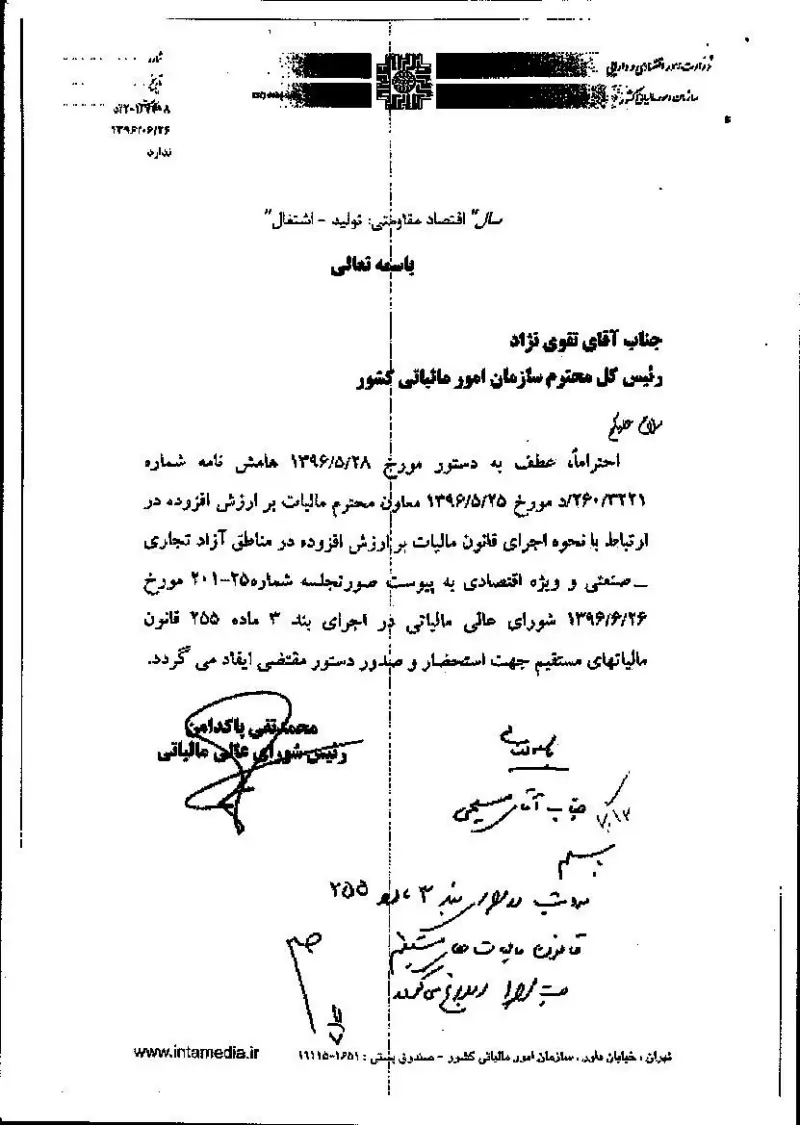 وزارت امور اقتصادی و دارایی
سازمان امور مالیاتی کشور
شماره
تاریخ
۱۳۹۶/۰۶/۲۶
ندارد
سال" اقتصاد مقاومتی: تولید - اشتغال"
باسمه تعالی
جناب آقای تقوی نژاد
رئیس کل محترم سازمان امور مالیاتی کشور
سلام علیکم
احتراماً، عطف به دستور مورخ ۱۳۹۶/۵/۲۸ هامش نامه شماره
۲۶۰/۳۲۲۱/د مورخ ۱۳۹۶/۵/۲۵ معاون محترم مالیات بر ارزش افزوده در
ارتباط با نحوه اجرای قانون مالیات بر ارزش افزوده در مناطق آزاد تجاری
_صنعتی و ویژه اقتصادی به پیوست صورتجلسه شماره۲۵-۲۰۱ مورخ
۱۳۹۶/۶/۲۶ شورای عالی مالیاتی در اجرای بند ۳ ماده ۲۵۵ قانون
مالیاتهای مستقیم جهت استحضار و صدور دستور مقتضی ایفاد می گردد.
محمدتقی پاکدامن
رئیس شورای عالی مالیاتی
باسمه تعالی
جناب آقای مسیحی
۷/۱۲
سلام
در اجرای بند ۳ ماده ۲۵۵
قانون مالیات های مستقیم
جهت اجرا ابلاغ می گردد
تهران ، خیابان داور ، سازمان امور مالیاتی کشور - صندوق پستی : ۱۶۵۱-۱۱۱۱۵
www.intamedia.ir